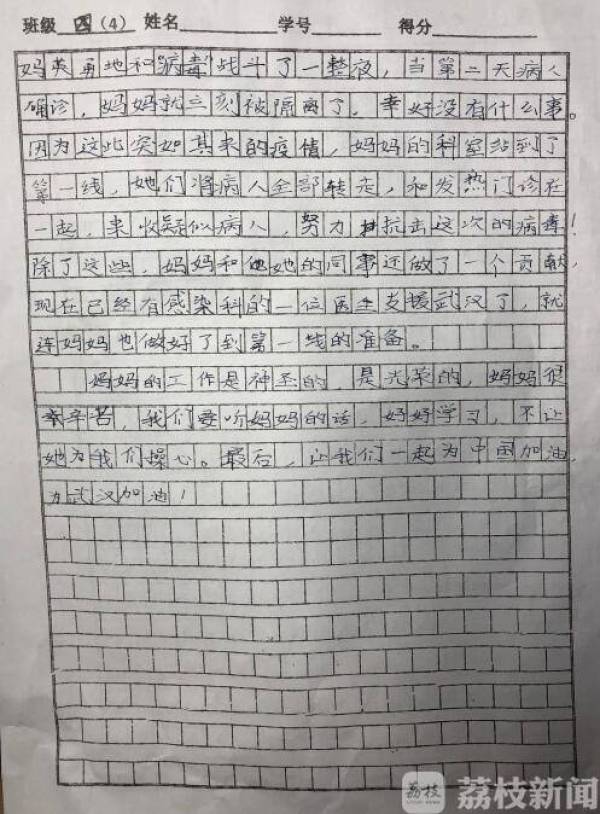 班级 四(4) 姓名 学号 得分
妈英勇地和病毒战斗了一整夜，当第二天病人
确诊，妈妈就立刻被隔离了，幸好没有什么事。
因为这此突如其来的疫情，妈妈的科室站到了
第一线，她们将病人全部转走，和发热门诊在
一起，来收疑似病人，努力抗击这次的病毒！
除了这些，妈妈和她的同事还做了一个贡献，
现在已经有感染科的一位医生支援武汉了，就
连妈妈也做好了到第一线的准备。
妈妈的工作是神圣的，是光荣的，妈妈很
辛苦，我们要听妈妈的话，好好学习，不让
她为我们操心。最后，让我们一起为中国加油，
为武汉加油！
荔枝 荔枝新闻